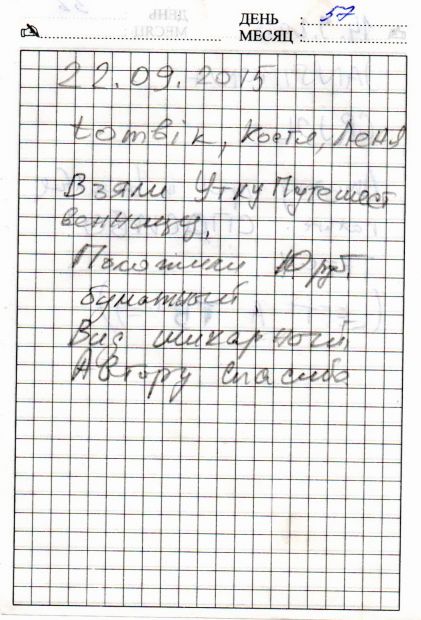 ДЕНЬ 57
МЕСЯЦ :
22.09.2015
tomвik, Костя, Леня
Взяли Утку Путешест
венницу.
Положили 10 руб.
бумажный
Вид шикарный
Автору спасибо